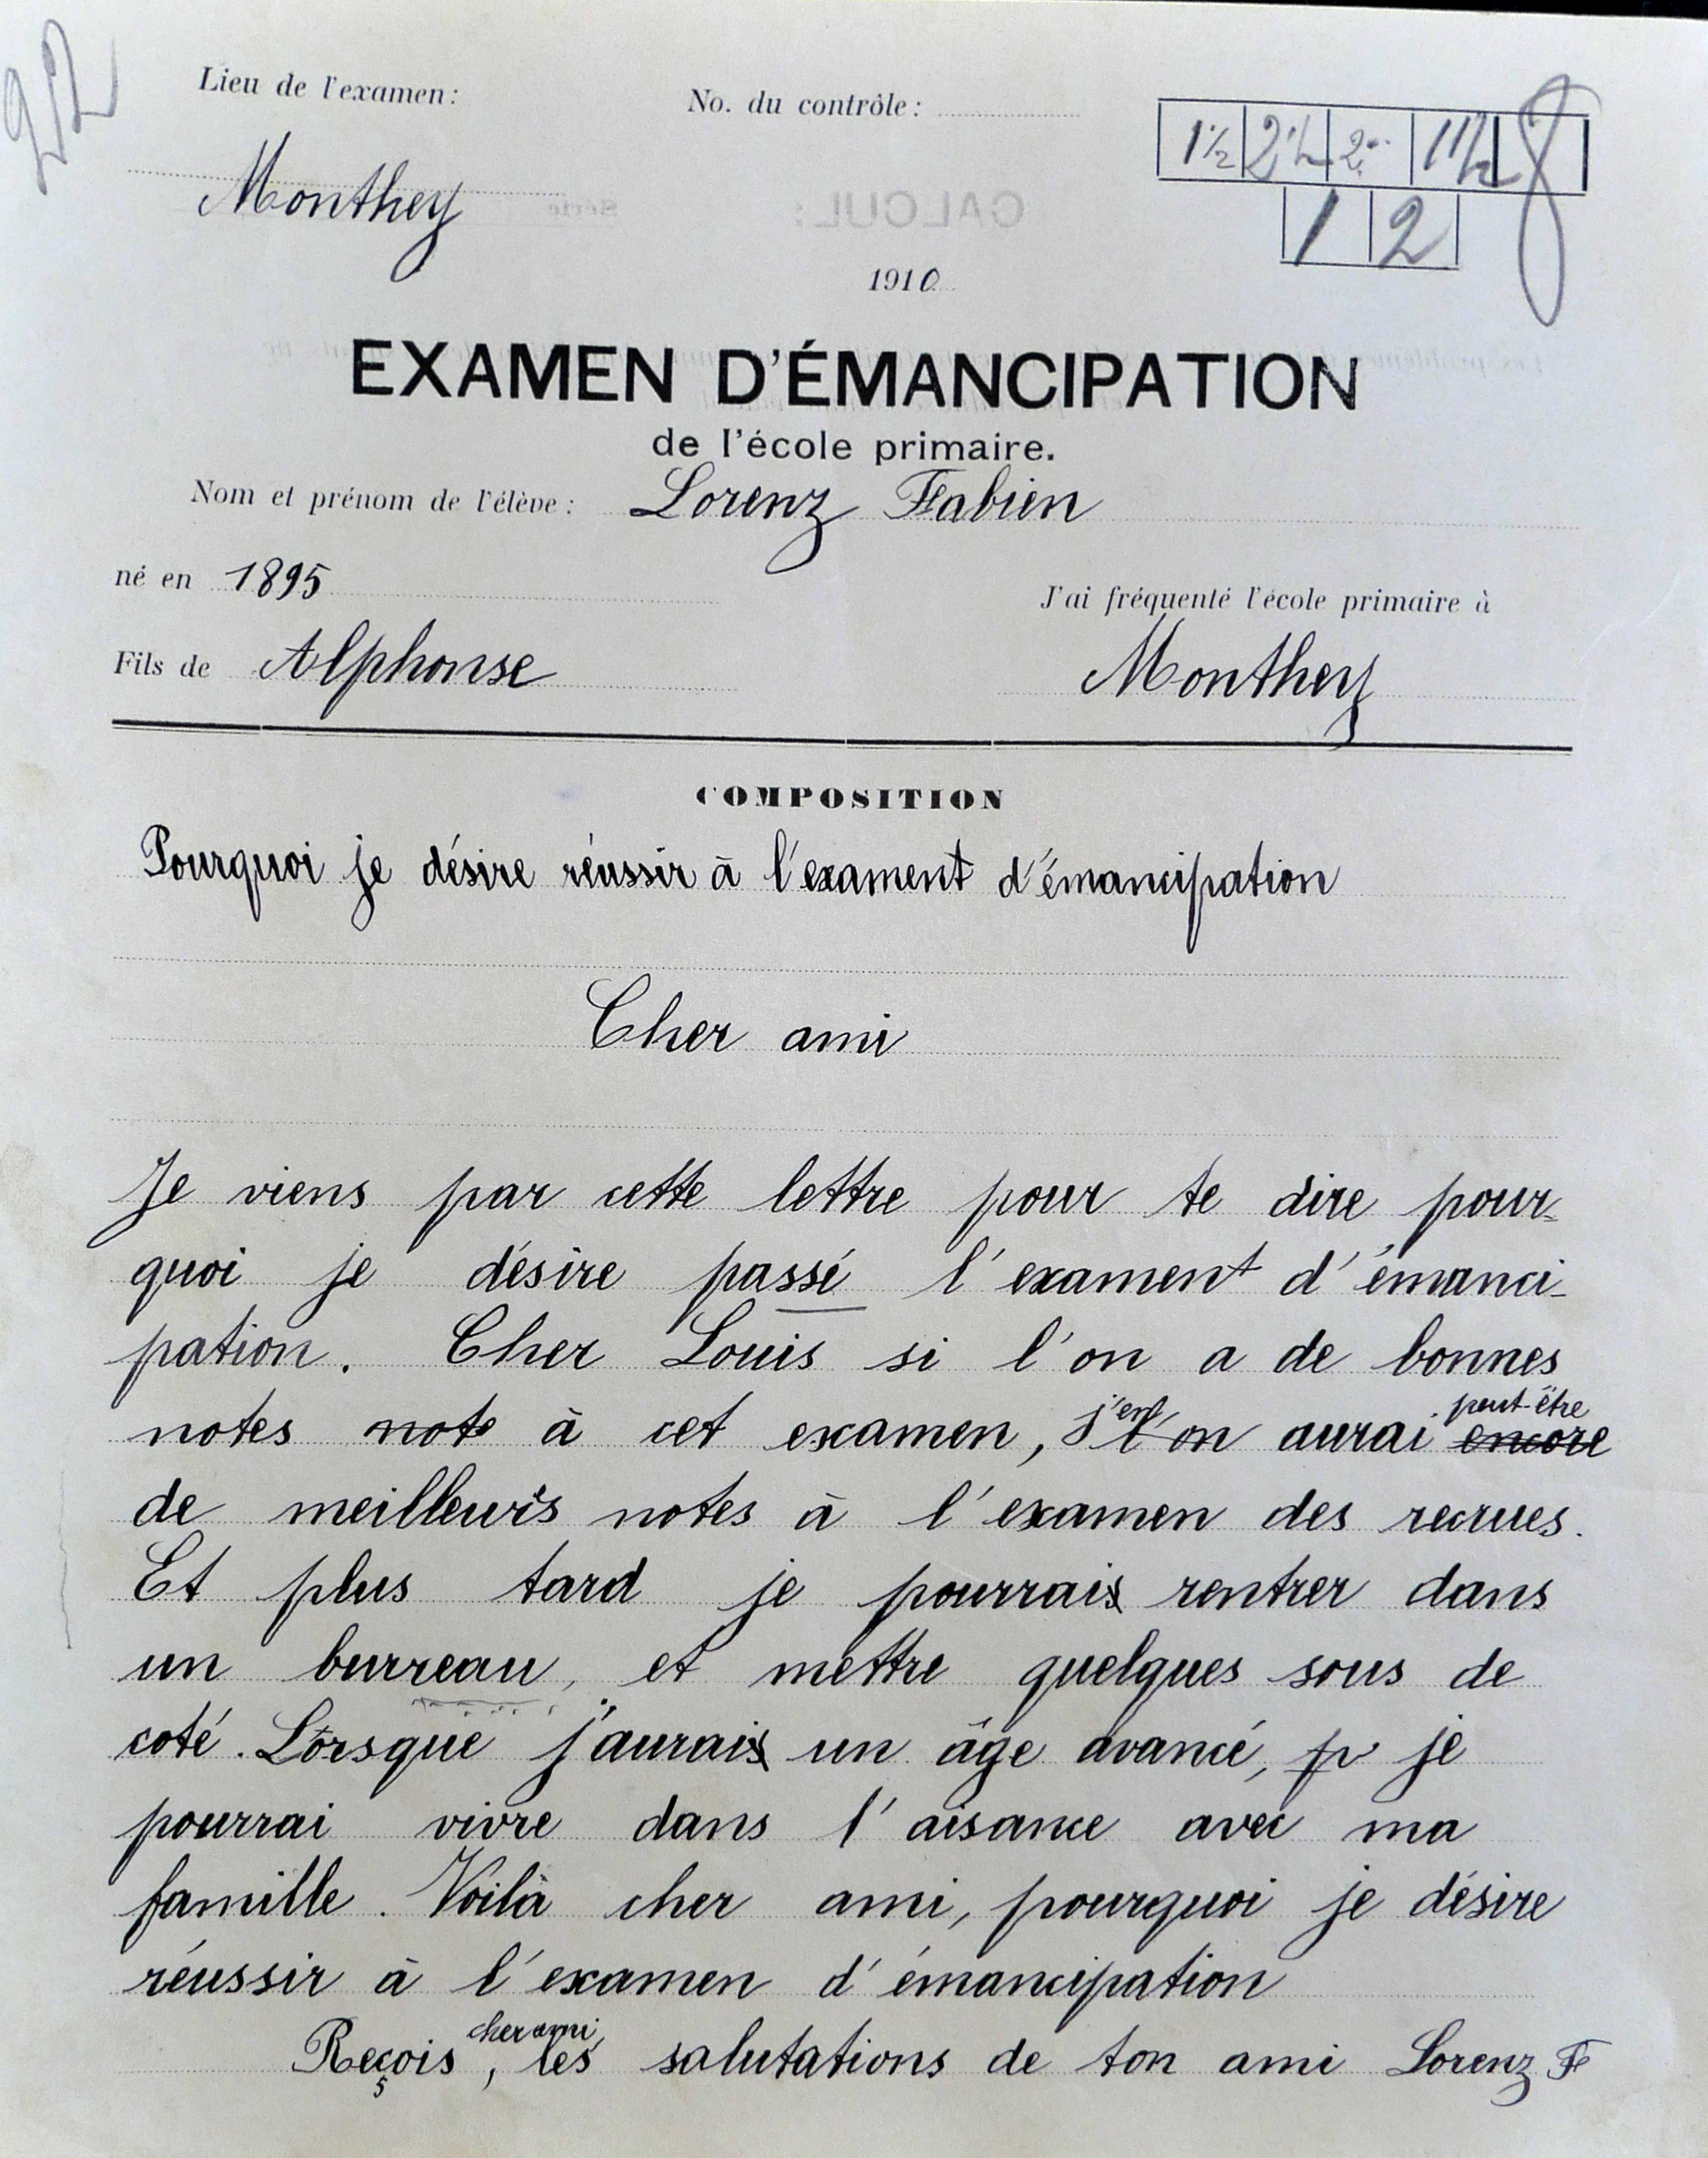 92
Lieu de l'examen:
No. du contrôle:
1½ 2½ 2 1½ 8
Monthey
1 2
1910
EXAMEN D'ÉMANCIPATION
de l'école primaire.
Nom et prénom de l'élève: Lorenz Fabien
né en 1895
J'ai fréquenté l'école primaire à
Fils de Alphonse
Monthey
COMPOSITION
Pourquoi je désire réussir à l'exament d'émancipation
Cher ami
Je viens par cette lettre pour te dire pour-
quoi je désire passé l'exament d'émanci-
pation. Cher Louis si l'on a de bonnes
notes note à cet examen, j'en l'on aurai encore peut-être
de meilleurs notes à l'examen des recrues.
Et plus tard je pourrais rentrer dans
un burreau, et mettre quelques sous de
coté. Lorsque j'aurais un âge avancé, p je
pourrai vivre dans l'aisance avec ma
famille. Voilà cher ami, pourquoi je désire
réussir à l'examen d'émancipation
Reçois, cher ami, les salutations de ton ami Lorenz F